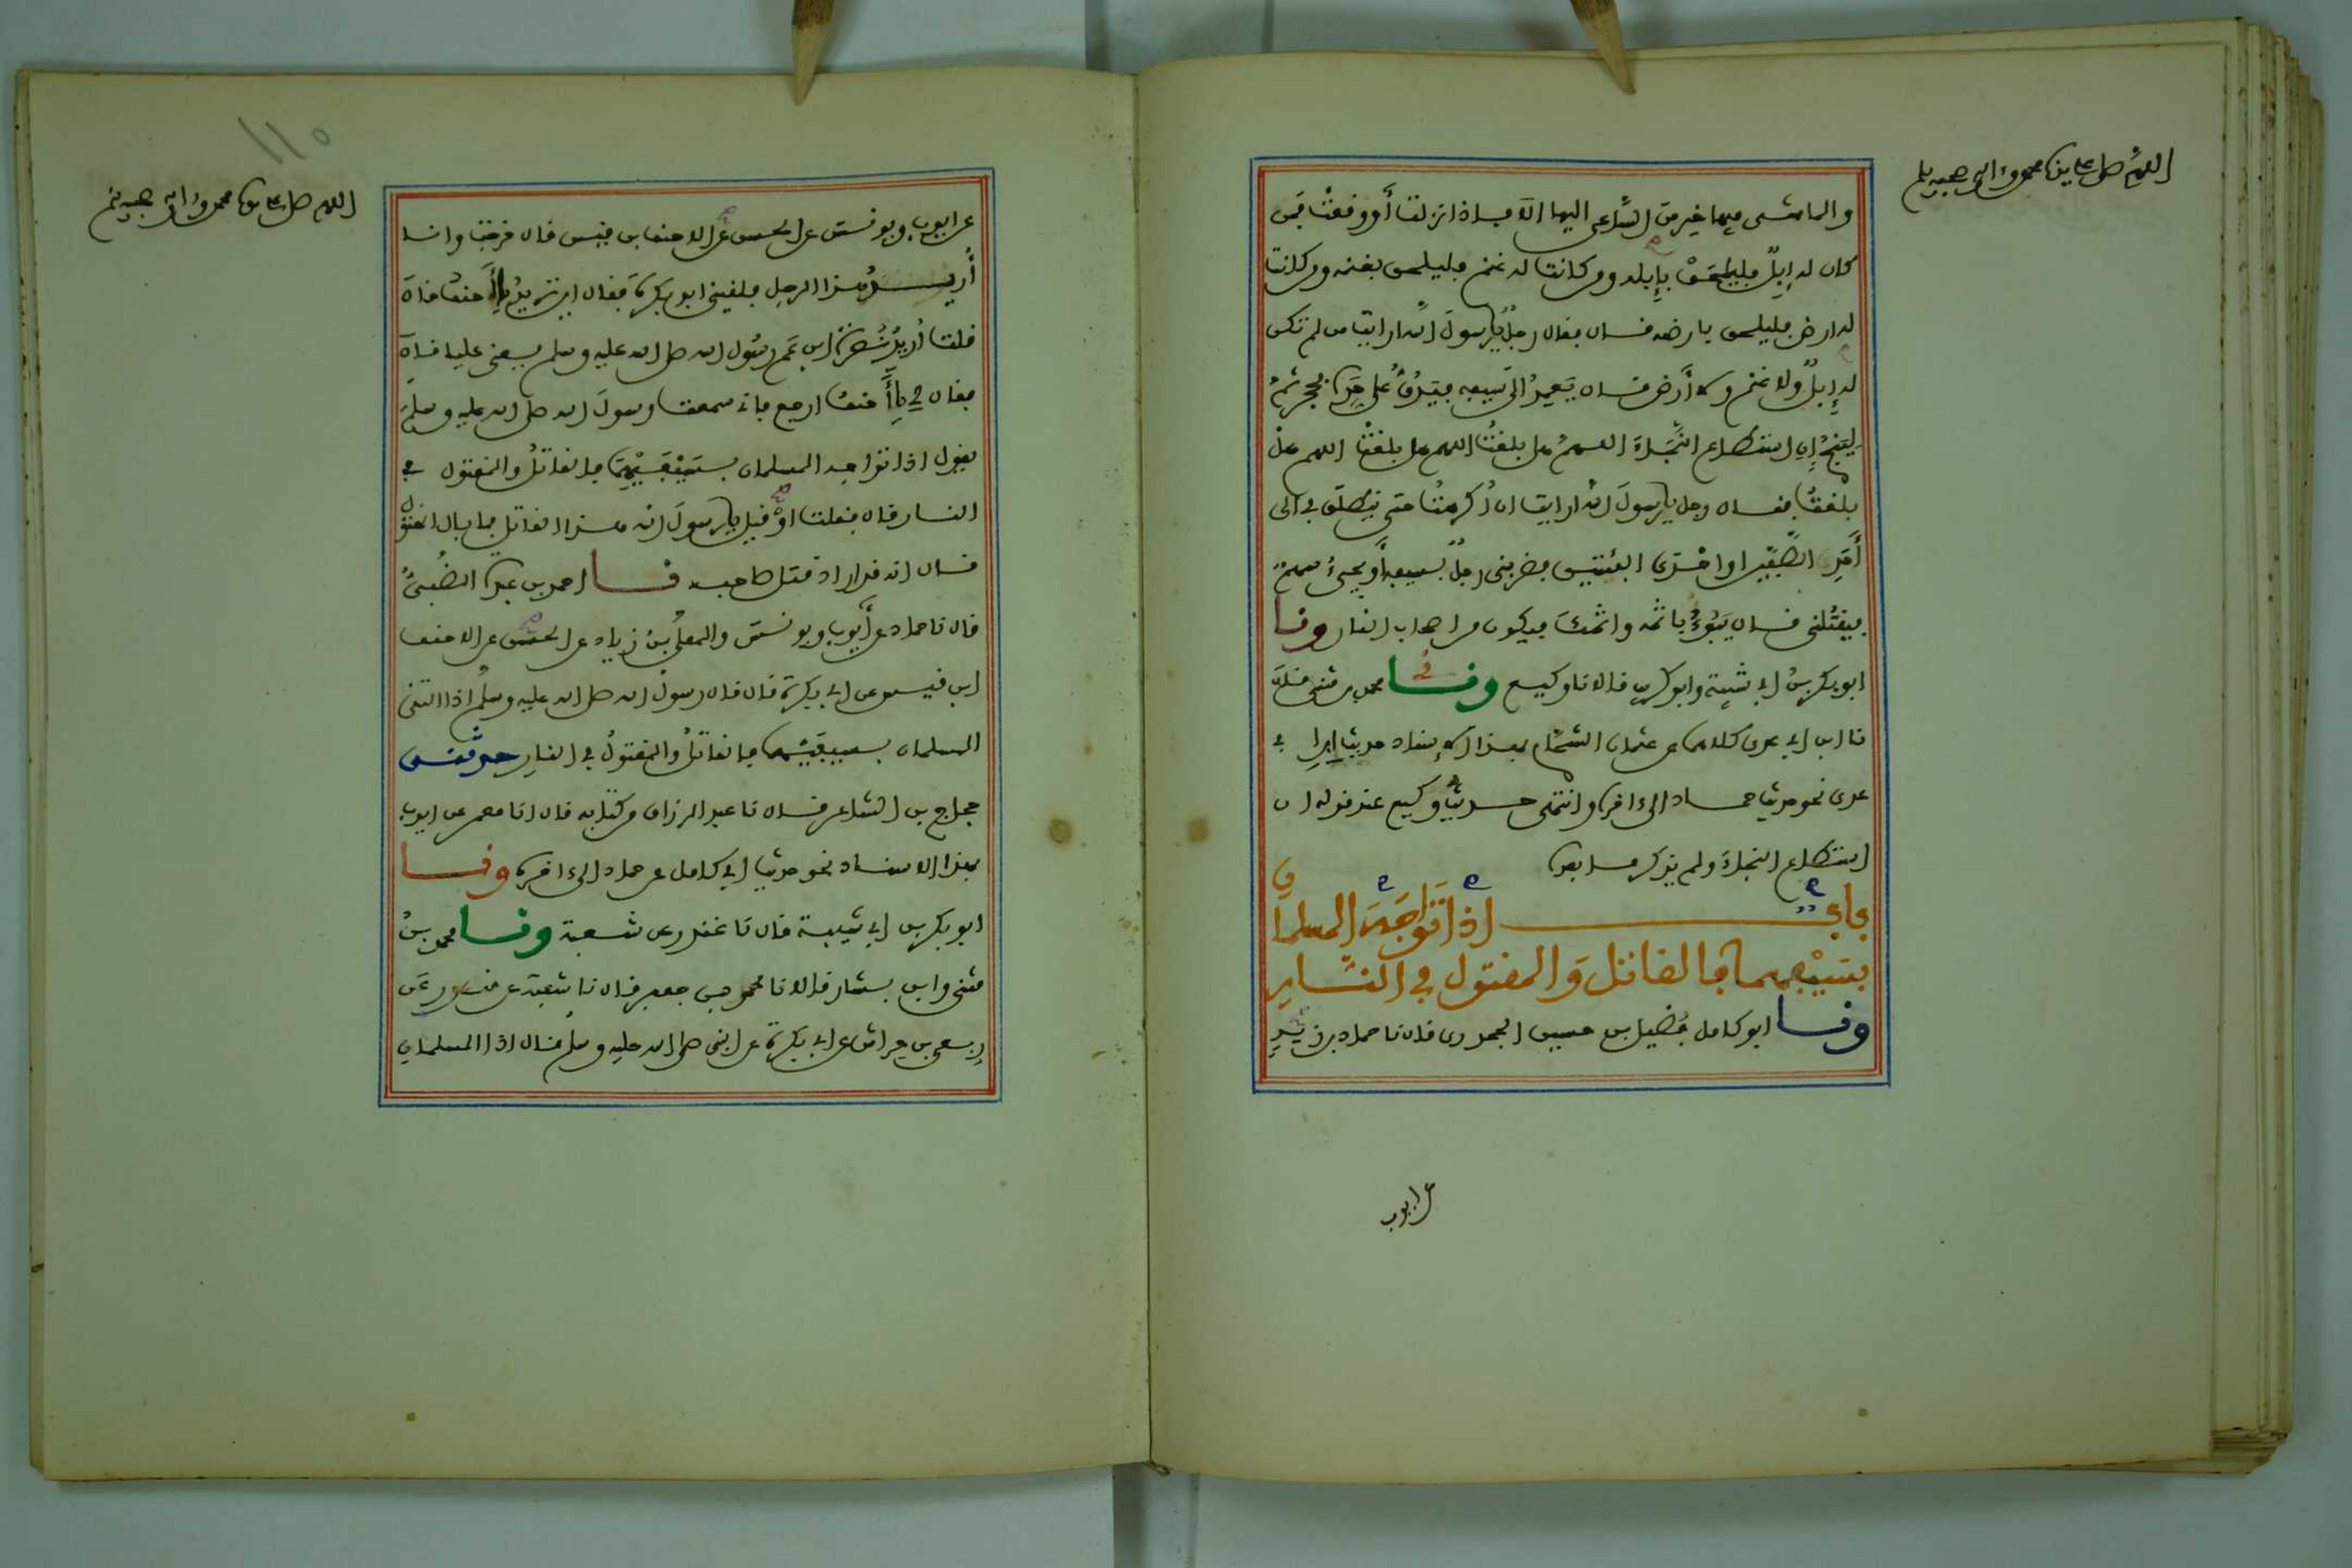 اللهم صل على سيدنا محمد وآله وصحبه وسلم
والماشى فيها خير من الساعى اليها الا فاذا نزلت أو وقعت فمن
كان له إبل فليلحق بإبله ومن كانت له غنم فليلحق بغنمه ومن كانت
له ارض فليلحق بارضه قال فقال رجل يا رسول الله ارايت من لم تكن
له إبل ولا غنم ولا أرض قال يعمد الى سيفه فيدق على حده بحجر ثم
لينج إن استطاع النجاة اللهم هل بلغت اللهم هل بلغت اللهم هل
بلغت فقال رجل يا رسول الله ارايت ان أكرهت حتى ينطلق بى الى
أحد الصفين او احدى الفئتين فضربنى رجل بسيفه أو يجىء سهم
فيقتلنى قال يبوء باثمه واثمك ويكون من اصحاب النار ونا
ابو بكر بن ابى شيبة وابو كريب قالا نا وكيع ونا محمد بن مثنى قال
نا ابن ابى عدى كلاهما عن عثمان الشحام بهذا الاسناد حديث ابن ابى
عدى نحو حديث حماد الى اخره وانتهى حديث وكيع عند قوله ان
استطاع النجاة ولم يذكر ما بعده
باب اذا تواجه المسلمان
بسيفيهما فالقاتل والمقتول في النار
ونا ابو كامل فضيل بن حسين الجحدرى قال نا حماد بن زيد
عن ايوب
١١٥
اللهم صل على سيدنا محمد وآله وصحبه وسلم
عن ايوب ويونس عن الحسن عن الاحنف بن قيس قال خرجت وانا
أريد هذا الرجل فلقينى ابو بكرة فقال اين تريد يا أحنف قال
قلت أريد نصر ابن عم رسول الله صلى الله عليه وسلم يعنى عليا قال
فقال لى يا أحنف ارجع فانى سمعت رسول الله صلى الله عليه وسلم
يقول اذا تواجه المسلمان بسيفيهما فالقاتل والمقتول في
النار قال فقلت او قيل يا رسول الله هذا القاتل فما بال المقتول
قال انه قد اراد قتل صاحبه نا احمد بن عبدة الضبى
قال نا حماد عن أيوب ويونس والمعلى بن زياد عن الحسن عن الاحنف
ابن قيس عن ابى بكرة قال قال رسول الله صلى الله عليه وسلم اذا التقى
المسلمان بسيفيهما فالقاتل والمقتول في النار حدثنى
حجاج بن الشاعر قال نا عبد الرزاق من كتابه قال انا معمر عن ايوب
بهذا الاسناد نحو حديث ابى كامل عن حماد الى اخره ونا
ابو بكر بن ابى شيبة قال نا غندر عن شعبة ونا محمد بن
مثنى وابن بشار قالا نا محمد بن جعفر قال نا شعبة عن منصور عن
ربعى بن حراش عن ابى بكرة عن النبى صلى الله عليه وسلم قال اذا المسلمان